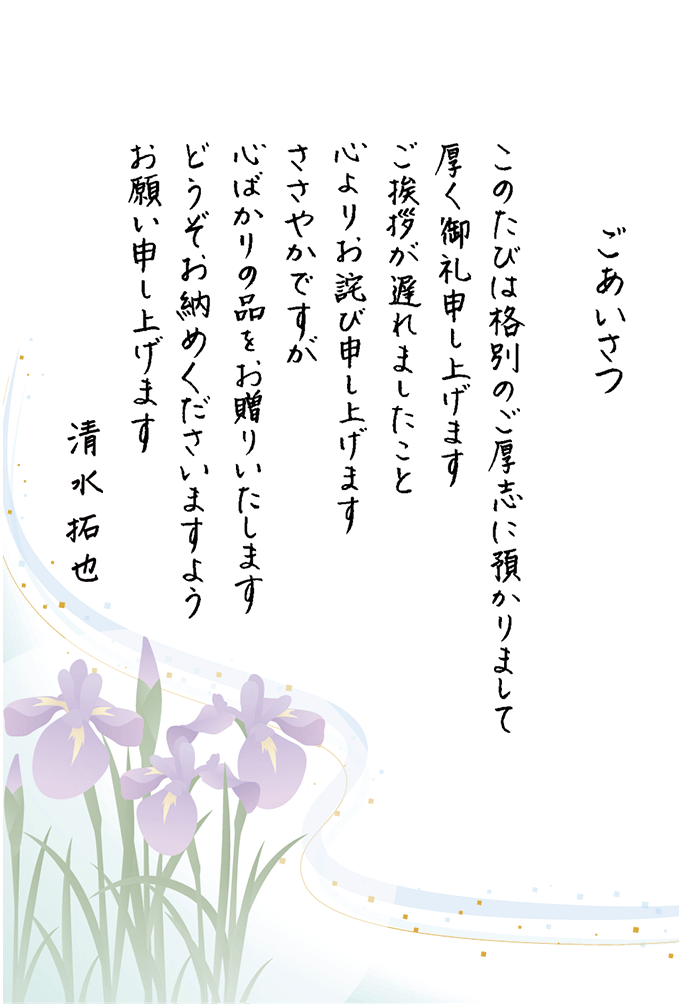 ごあいさつ
このたびは格別のご厚志に預かりまして
厚く御礼申し上げます
ご挨拶が遅れましたこと
心よりお詫び申し上げます
ささやかですが
心ばかりの品をお贈りいたします
どうぞお納めくださいますよう
お願い申し上げます
清水拓也